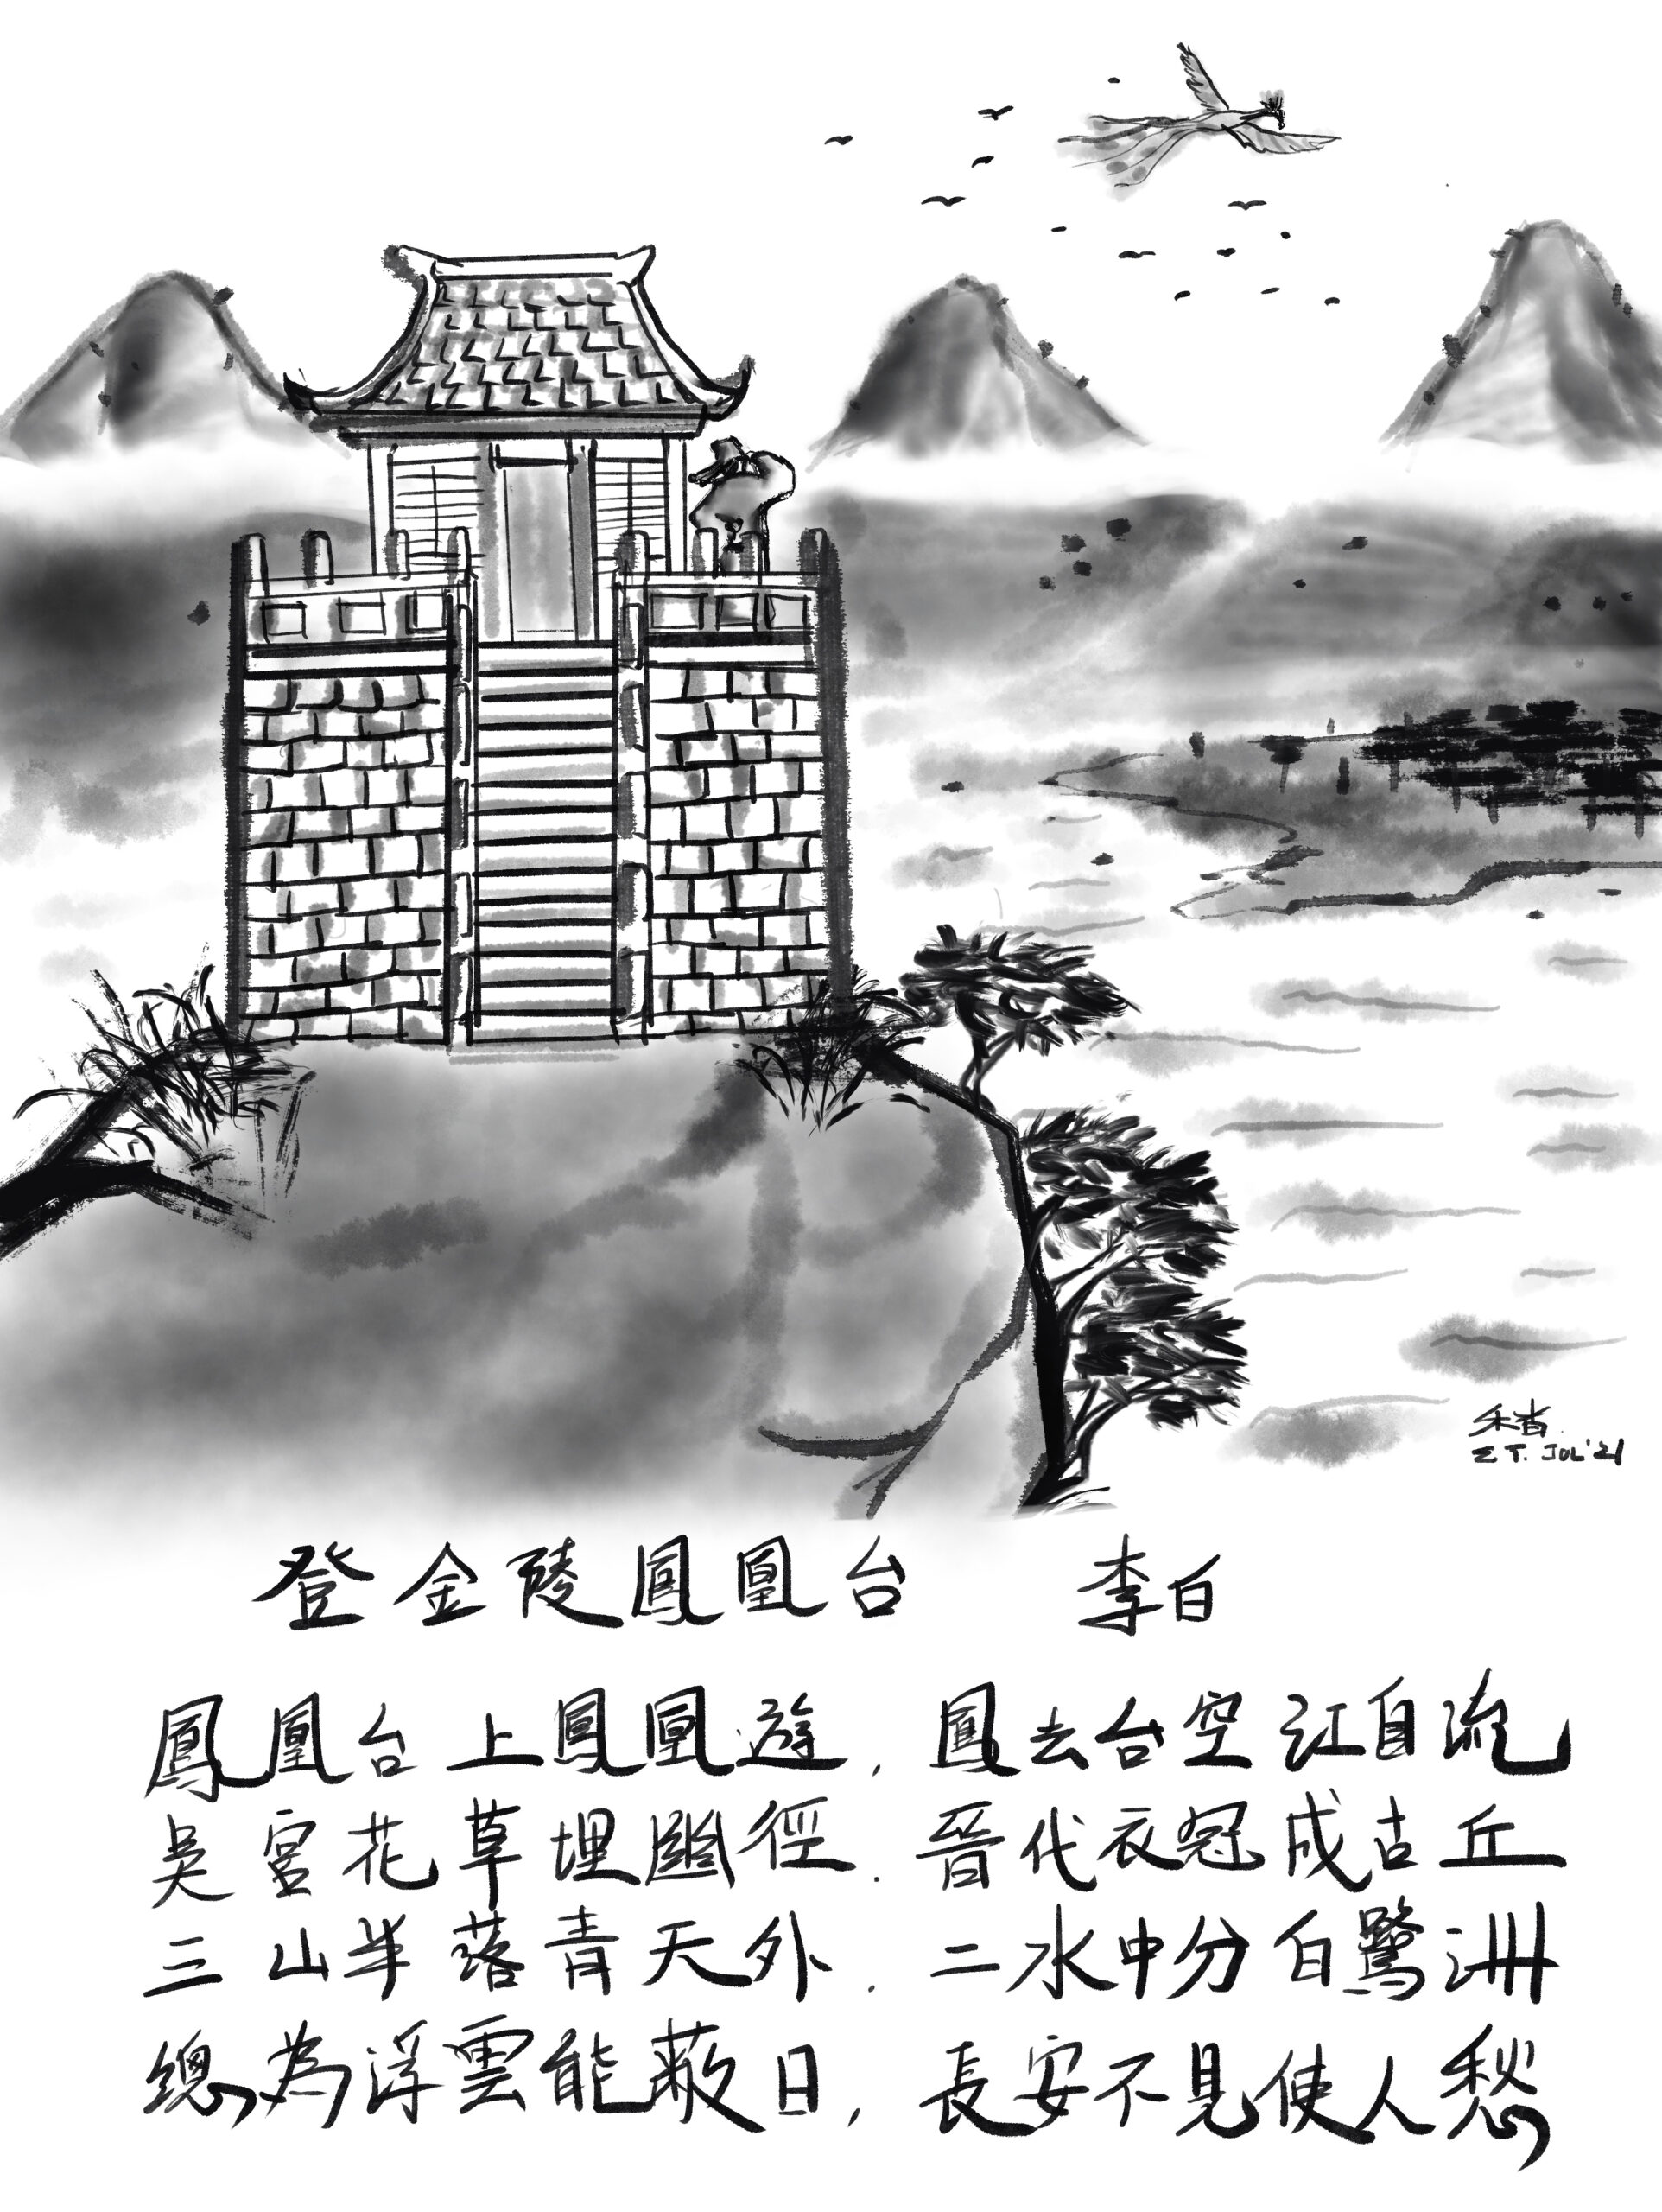 禾杳
Z T. JUL'21
登金陵鳳凰台 李白
鳳凰台上鳳凰遊，鳳去台空江自流
吳宮花草埋幽徑．晉代衣冠成古丘
三山半落青天外．二水中分白鷺洲
總為浮雲能蔽日，長安不見使人愁